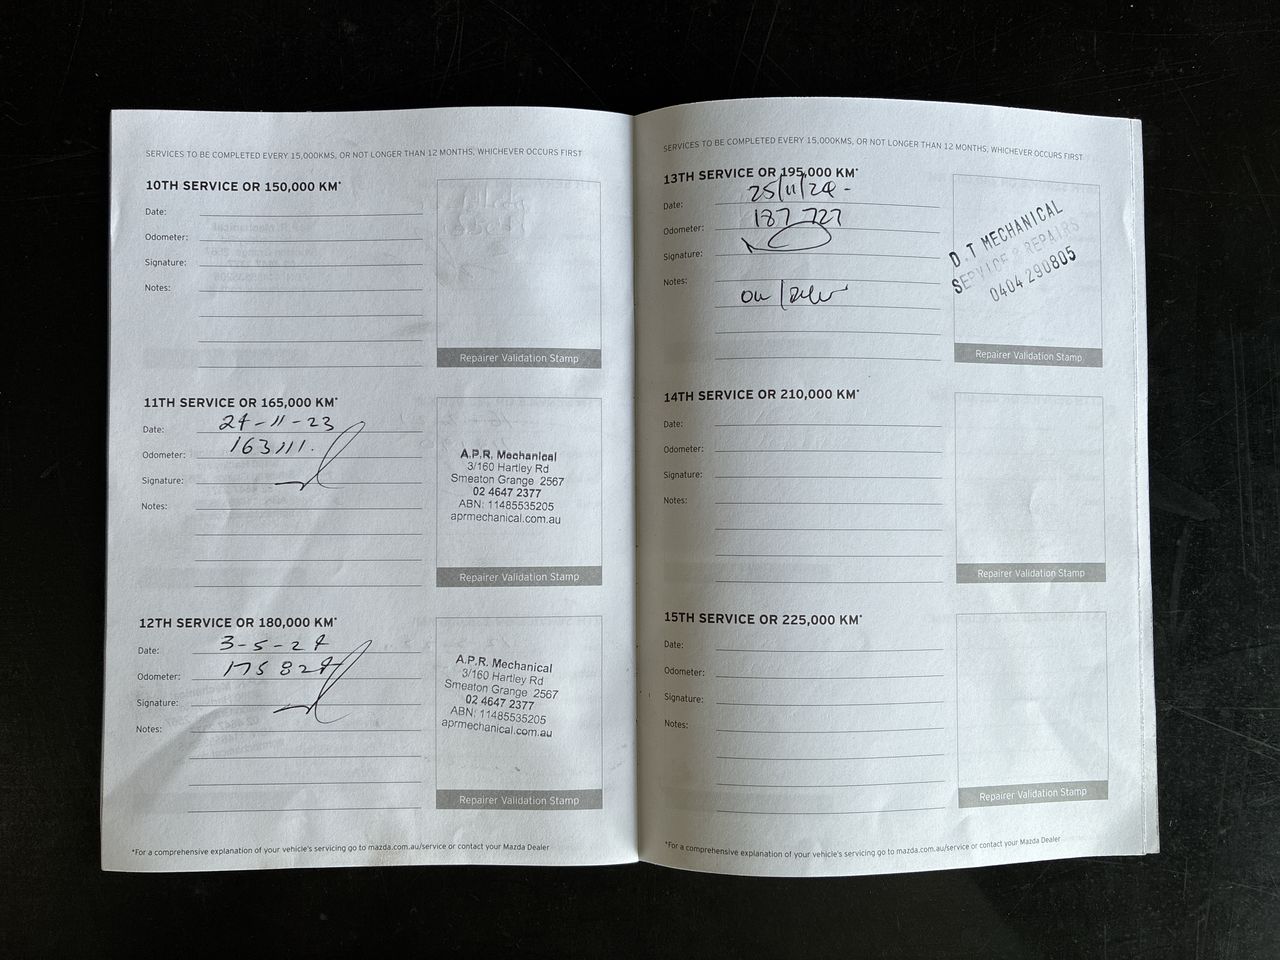 SERVICES TO BE COMPLETED EVERY 15,000KMS, OR NOT LONGER THAN 12 MONTHS, WHICHEVER OCCURS FIRST
10TH SERVICE OR 150,000 KM*
Date:
Odometer:
Signature:
Notes:
Repairer Validation Stamp
11TH SERVICE OR 165,000 KM*
Date: 24-11-23
Odometer: 163111.
Signature:
Notes:
A.P.R. Mechanical
3/160 Hartley Rd
Smeaton Grange 2567
02 4647 2377
ABN: 11485535205
aprmechanical.com.au
Repairer Validation Stamp
12TH SERVICE OR 180,000 KM*
Date: 3-5-24
Odometer: 175824
Signature:
Notes:
A.P.R. Mechanical
3/160 Hartley Rd
Smeaton Grange 2567
02 4647 2377
ABN: 11485535205
aprmechanical.com.au
Repairer Validation Stamp
*For a comprehensive explanation of your vehicle's servicing go to mazda.com.au/service or contact your Mazda Dealer
SERVICES TO BE COMPLETED EVERY 15,000KMS, OR NOT LONGER THAN 12 MONTHS, WHICHEVER OCCURS FIRST
13TH SERVICE OR 195,000 KM*
Date: 25/11/24-
Odometer: 187 727
Signature:
Notes:
D.T MECHANICAL
SERVICE & REPAIRS
0404 290805
Repairer Validation Stamp
14TH SERVICE OR 210,000 KM*
Date:
Odometer:
Signature:
Notes:
Repairer Validation Stamp
15TH SERVICE OR 225,000 KM*
Date:
Odometer:
Signature:
Notes:
Repairer Validation Stamp
*For a comprehensive explanation of your vehicle's servicing go to mazda.com.au/service or contact your Mazda Dealer